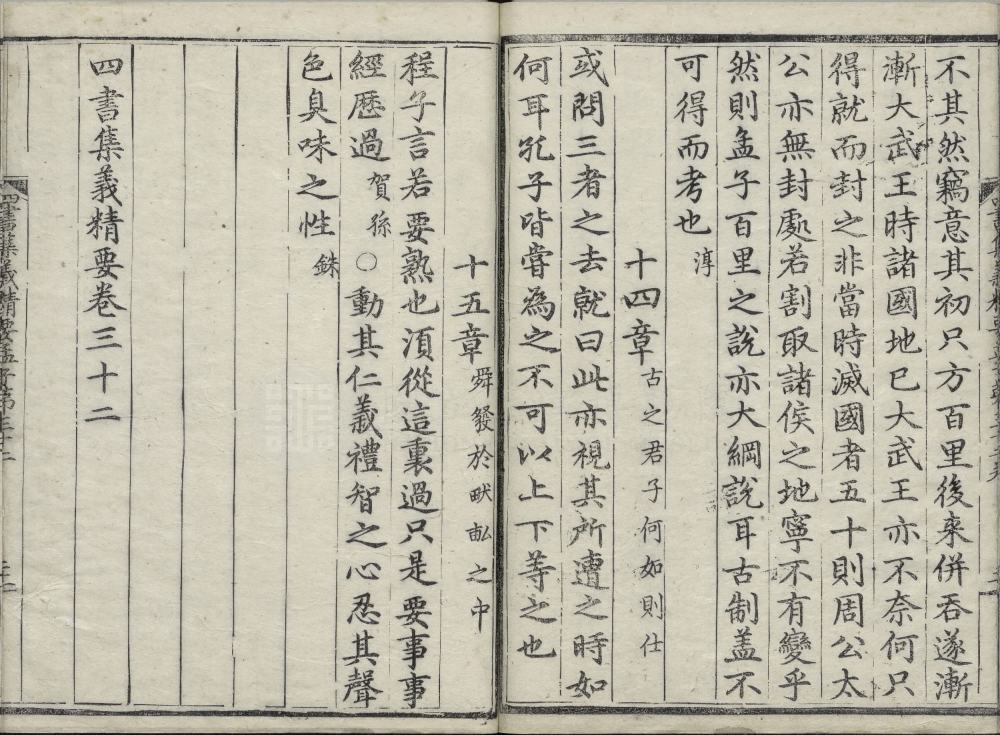 不其然竊意其初只方百里後来併吞遂漸
漸大武王時諸國地已大武王亦不奈何只
得就而封之非當時滅國者五十則周公太
公亦無封處若割取諸侯之地寧不有變乎
然則孟子百里之說亦大綱說耳古制盖不
可得而考也 淳
十四章 古之君子何如則仕
或問三者之去就曰此亦視其所遭之時如
何耳孔子皆甞為之不可以上下等之也
十五章 舜發於畎畝之中
程子言若要熟也湏從這裏過只是要事事
經歷過 賀孫 ○動其仁義禮智之心忍其聲
色臭味之性 銖
四書集義精要卷三十二